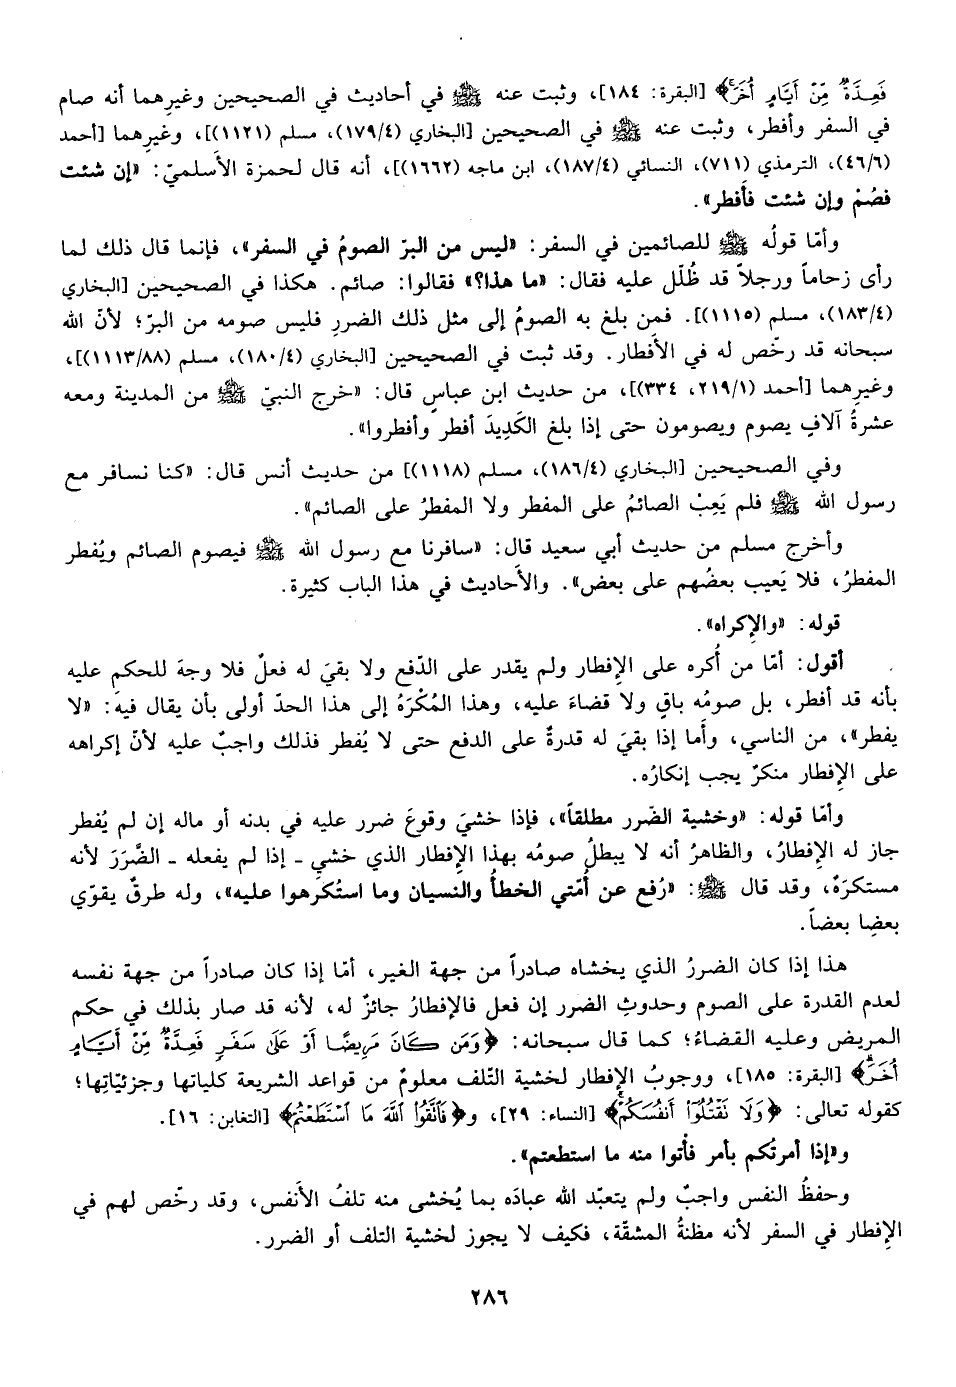 فَعِدَّةٌ مِّنْ أَيَّامٍ أُخَرَ﴾ [البقرة: ١٨٤]، وثبت عنه ﷺ في أحاديث في الصحيحين وغيرهما أنه صام
في السفر وأفطر، وثبت عنه ﷺ في الصحيحين [البخاري (١٧٩/٤)، مسلم (١١٢١)]، وغيرِهما [أحمد
(٤٦/٦)، الترمذي (٧١١)، النسائي (١٨٧/٤)، ابن ماجه (١٦٦٢)]، أنه قال لحمزة الأسلميّ: «إن شئت
فصُمْ وإن شئت فأفطر».
وأمّا قولُه ﷺ للصائمين في السفر: «ليس من البرّ الصومُ في السفر»، فإنما قال ذلك لما
رأى زحاماً ورجلاً قد ظُلّل عليه فقال: «ما هذا؟» فقالوا: صائم. هكذا في الصحيحين [البخاري
(١٨٣/٤)، مسلم (١١١٥)]. فمن بلغ به الصومُ إلى مثل ذلك الضررِ فليس صومه من البرّ؛ لأنّ الله
سبحانه قد رخّص له في الأفطار. وقد ثبت في الصحيحين [البخاري (١٨٠/٤)، مسلم (١١١٣/٨٨)]،
وغيرِهما [أحمد (٢١٩/١، ٣٣٤)]، من حديث ابن عباسٍ قال: «خرج النبيّ ﷺ من المدينة ومعه
عشرةُ آلافٍ يصوم ويصومون حتى إذا بلغ الكَدِيدَ أفطر وأفطروا».
وفي الصحيحين [البخاري (١٨٦/٤)، مسلم (١١١٨)] من حديث أنس قال: «كنا نسافر مع
رسول الله ﷺ فلم يَعِبْ الصائمُ على المفطر ولا المفطرُ على الصائم».
وأخرج مسلم من حديث أبي سعيد قال: «سافرنا مع رسول الله ﷺ فيصوم الصائم ويُفطر
المفطرُ، فلا يَعيب بعضُهم على بعض». والأحاديث في هذا الباب كثيرة.
قوله: «والإكراه».
أقول: أمّا من أُكره على الإفطار ولم يقدر على الدّفع ولا بقيَ له فعلٌ فلا وجهَ للحكمِ عليه
بأنه قد أفطر، بل صومُه باقٍ ولا قضاءَ عليه، وهذا المُكْرَهُ إلى هذا الحدّ أولى بأن يقال فيه: «لا
يفطر»، من الناسي، وأَما إذا بقيَ له قدرةٌ على الدفع حتى لا يُفطر فذلك واجبٌ عليه لأنّ إكراهه
على الإفطار منكرٌ يجب إنكارُه.
وأمّا قوله: «وخشية الضّرر مطلقاً»، فإذا خشيَ وقوعَ ضرر عليه في بدنه أو ماله إن لم يُفطر
جاز له الإفطارُ، والظاهرُ أنه لا يبطلُ صومُه بهذا الإفطار الذي خشي ـ إذا لم يفعله ـ الضَّرَرَ لأنه
مستكرَهٌ، وقد قال ﷺ: «رُفع عن أمّتي الخطأُ والنسيان وما استُكرهوا عليه»، وله طرقٌ يقوّي
بعضها بعضاً.
هذا إذا كان الضررُ الذي يخشاه صادراً من جهة الغير، أمّا إذا كان صادراً من جهة نفسه
لعدم القدرة على الصوم وحدوثِ الضرر إن فعل فالإفطارُ جائزٌ له، لأنه قد صار بذلك في حكم
المريض وعليه القضاءُ؛ كما قال سبحانه: ﴿وَمَن كَانَ مَرِيضًا أَوْ عَلَىٰ سَفَرٍ فَعِدَّةٌ مِّنْ أَيَّامٍ
أُخَرَ﴾ [البقرة: ١٨٥]، ووجوبُ الإفطار لخشية التّلف معلومٌ من قواعد الشريعة كلياتها وجزئيّاتِها؛
كقوله تعالى: ﴿وَلَا تَقْتُلُوٓا۟ أَنفُسَكُمْ﴾ [النساء: ٢٩]، و﴿فَاتَّقُوا۟ اللَّهَ مَا اسْتَطَعْتُمْ﴾ [التغابن: ١٦].
و«إذا أمرتُكم بأمر فأْتوا منه ما استطعتم».
وحفظُ النفس واجبٌ ولم يتعبّد الله عبادَه بما يُخشى منه تلفُ الأنفس، وقد رخّص لهم في
الإفطار في السفر لأنه مظنةُ المشقّة، فكيف لا يجوز لخشية التلف أو الضرر.
٢٨٦